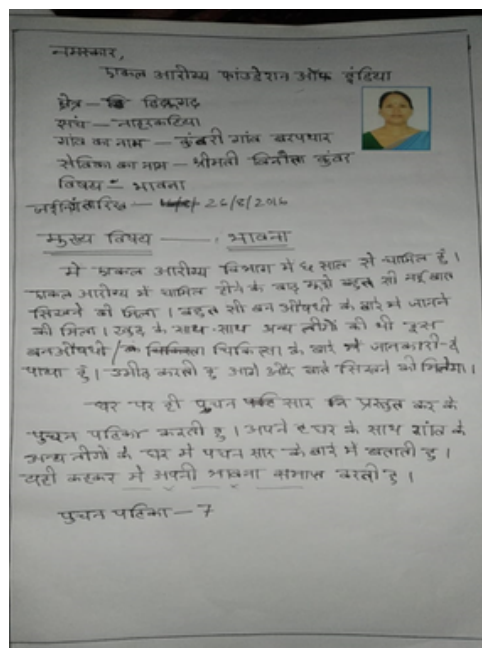 नमस्कार,
एकल आरोग्य फांउडेशन ऑफ इंडिया
क्षेत्र — डिब्रुगढ़
संच — नाहरकटिया
गांव का नाम — कुंवरी गांव बरपथार
सेविका का नाम — श्रीमती विनीता कुंवर
विषय — भावना
तारिख — 26/8/2016
मुख्य विषय — भावना
में एकल आरोग्य विभाग में ६ साल से शामिल हुँ।
एकल आरोग्य में शामिल होने के बाद मुझे बहुत सी नई बात
सिखने को मिला। बहुत सी बन औषधी के बारे में जानने
को मिला। खुद के साथ-साथ अन्य लोगों को भी इस
बनऔषधी / चिकित्सा के बारे में जानकारी दे
पाया हुँ। उमीद करती हु आगे और बाते सिखने को मिलेगा।
घर पर ही पुचन सार प्रस्तुत कर के
पुचन पटिका करती हु। अपने घर के साथ गांव के
अन्य लोगों के घर में पचन सार के बारे में बताती हु।
यही कहकर में अपनी भावना समाप्त करती हु।
पुचन पटिका — 7